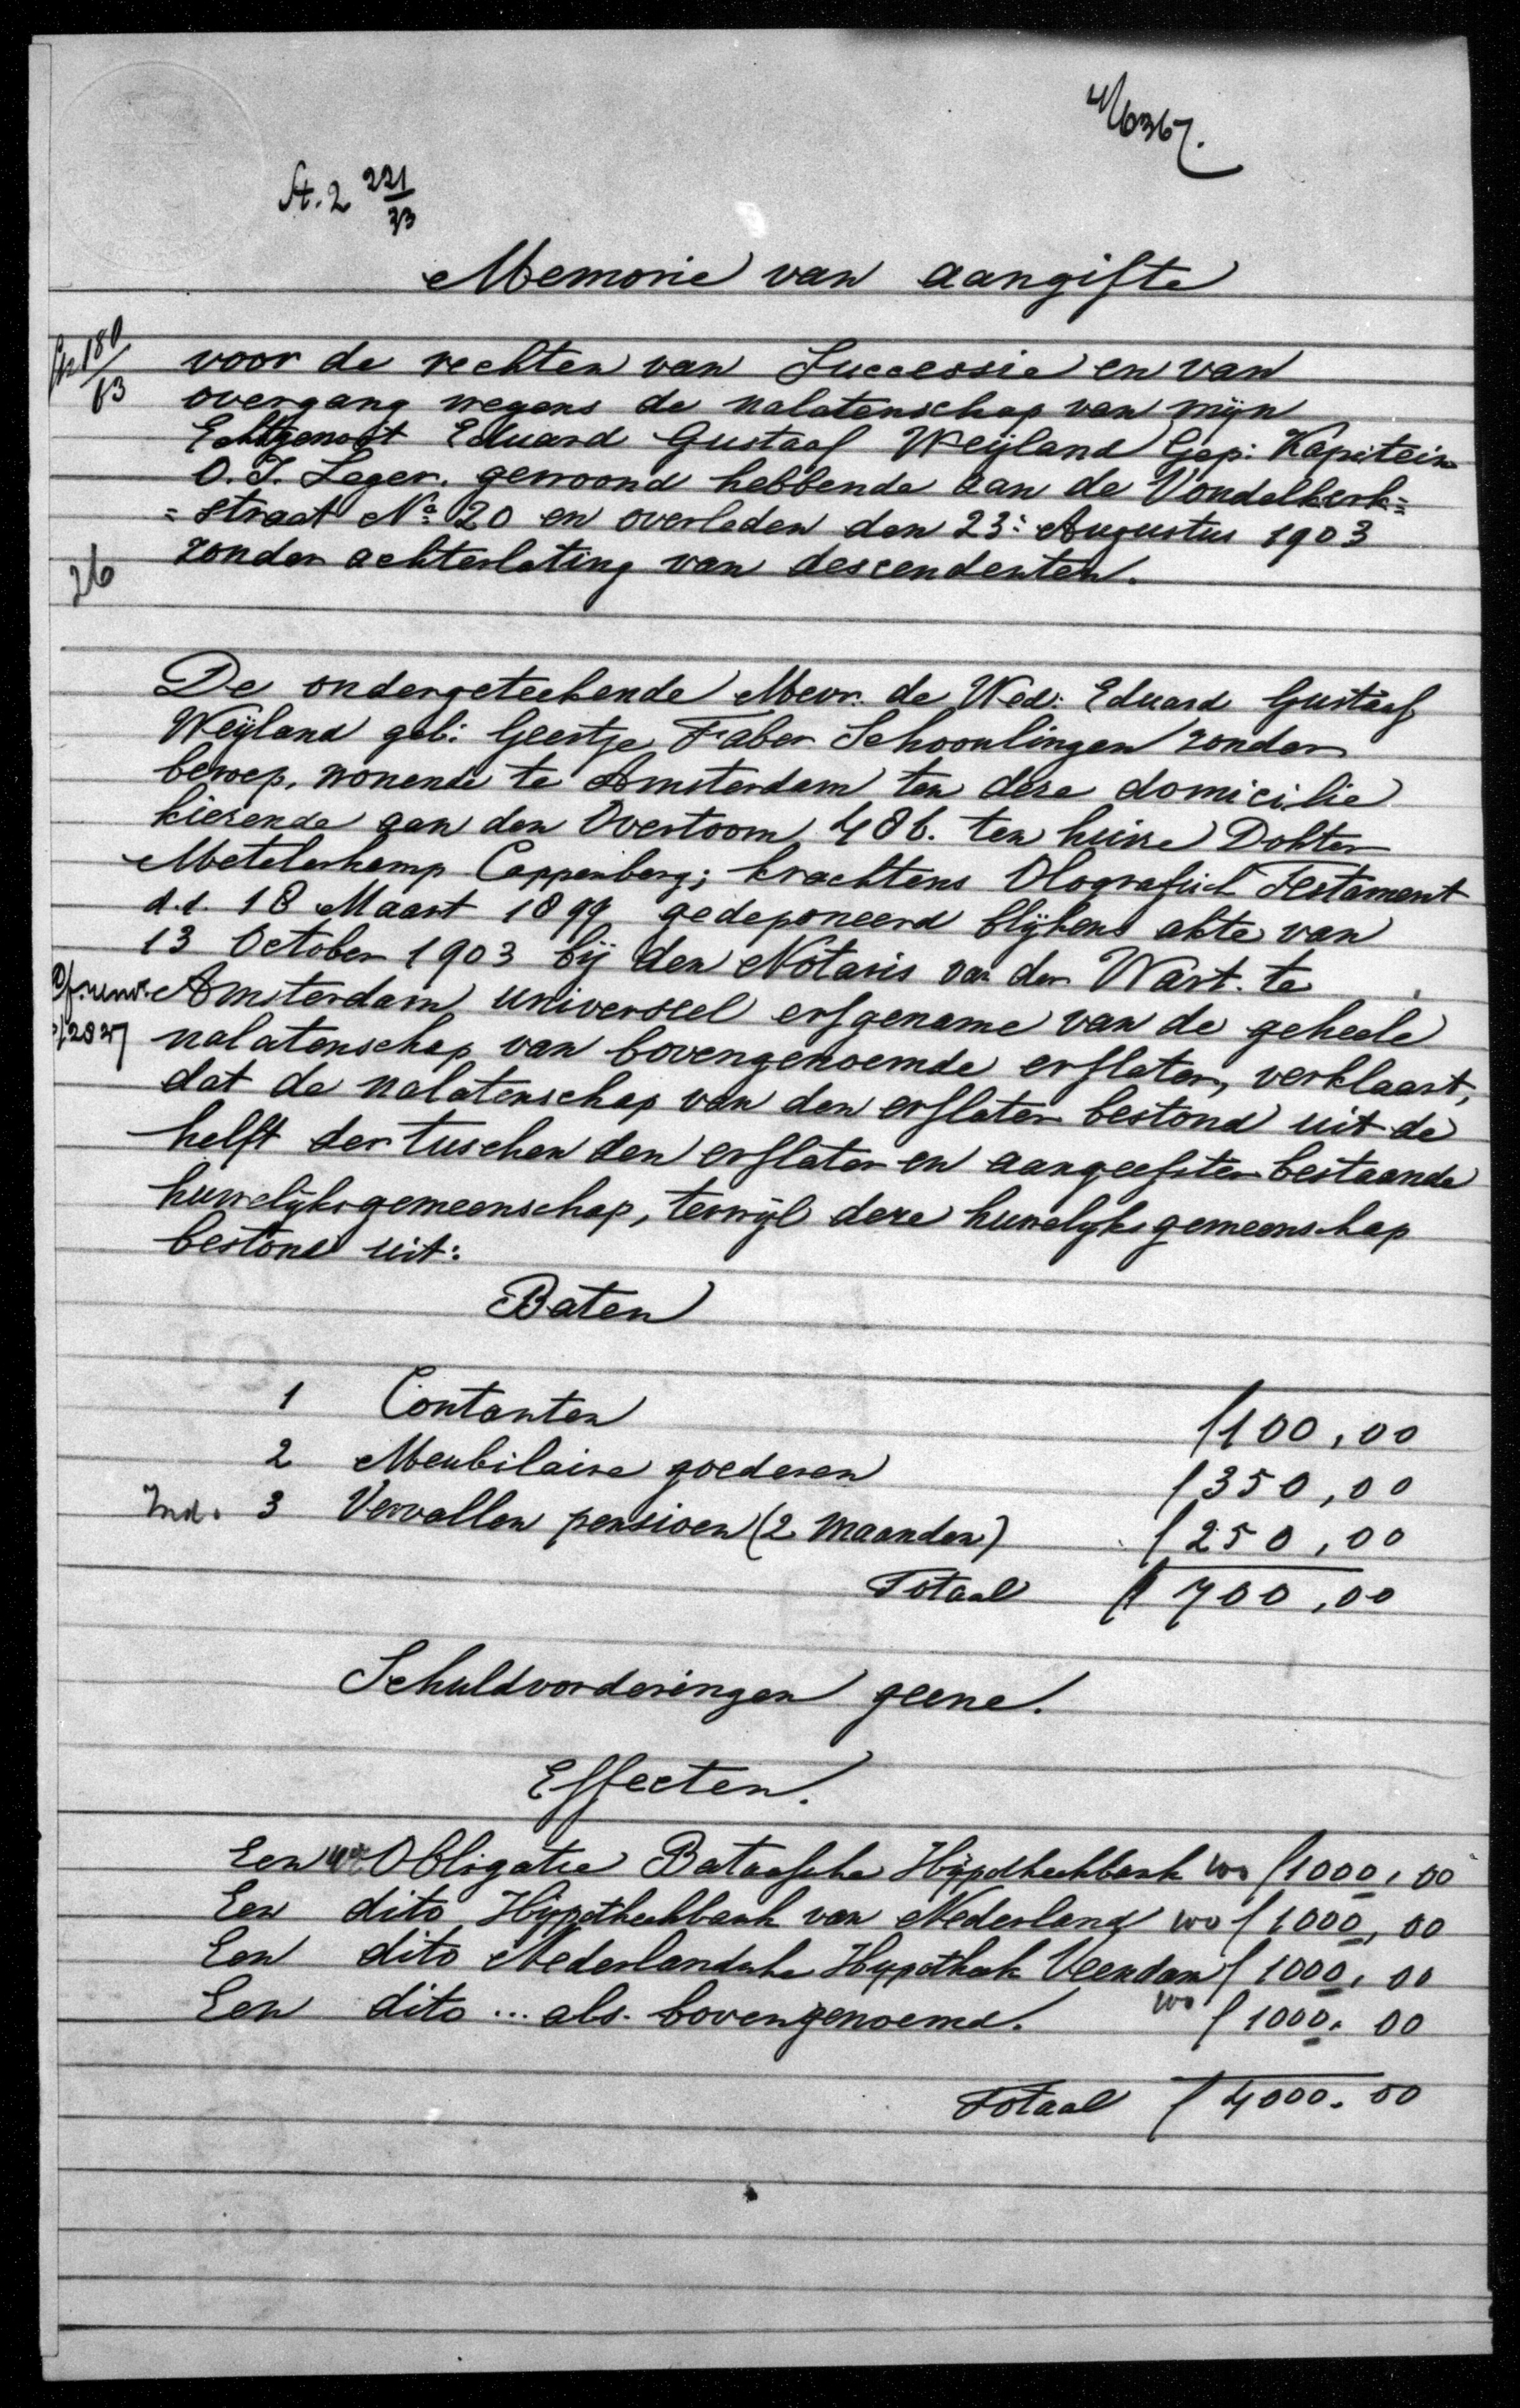 4/6367.
A. 2 221/33
Memorie van aangifte
180/63
voor de rechten van Successie en van
overgang wegens de nalatenschap van mijn
Echtgenoot Eduard Gustaaf Weijland Gep: Kapitein
O. I. Leger. gewoond hebbende aan de Vondelkerk=
=straat No 20 en overleden den 23: Augustus 1903
zonder achterlating van descendenten.
26
De ondergeteekende Mevr. de Wed: Eduard Gustaaf
Weijland geb: Geertje Faber Schoonlingen zonder
beroep, wonende te Amsterdam ten deze domicilie
kiezende aan den Overtoom 486. ten huize Dokter
Metelerkamp Cappenberg; krachtens Olografisch Testament
d.d. 18 Maart 1899 gedeponeerd blijkens akte van
13 October 1903 bij den Notaris van der Wart. te
Amsterdam universeel erfgename van de geheele
2837
nalatenschap van bovengenoemde erflater, verklaart,
dat de nalatenschap van den erflater bestond uit de
helft der tuschen den erflater en aangeefster bestaande
huwelijksgemeenschap, terwijl deze huwelijksgemeenschap
bestond uit:
Baten
1 Contanten f 100,00
2 Meubilaire goederen f 350,00
Ind. 3 Vervallen pensioen (2 maanden) f 250,00
Totaal f 700,00
Schuldvorderingen geene.
Effecten.
Een Obligatie Bataafsche Hijpotheekbank 100 f 1000,00
Een dito Hijpotheekbank van Nederland 100 f 1000,00
Een dito Nederlandsche Hypotheek Veendam f 1000,00
Een dito ... als bovengenoemd. 100 f 1000,00
Totaal f 4000.00